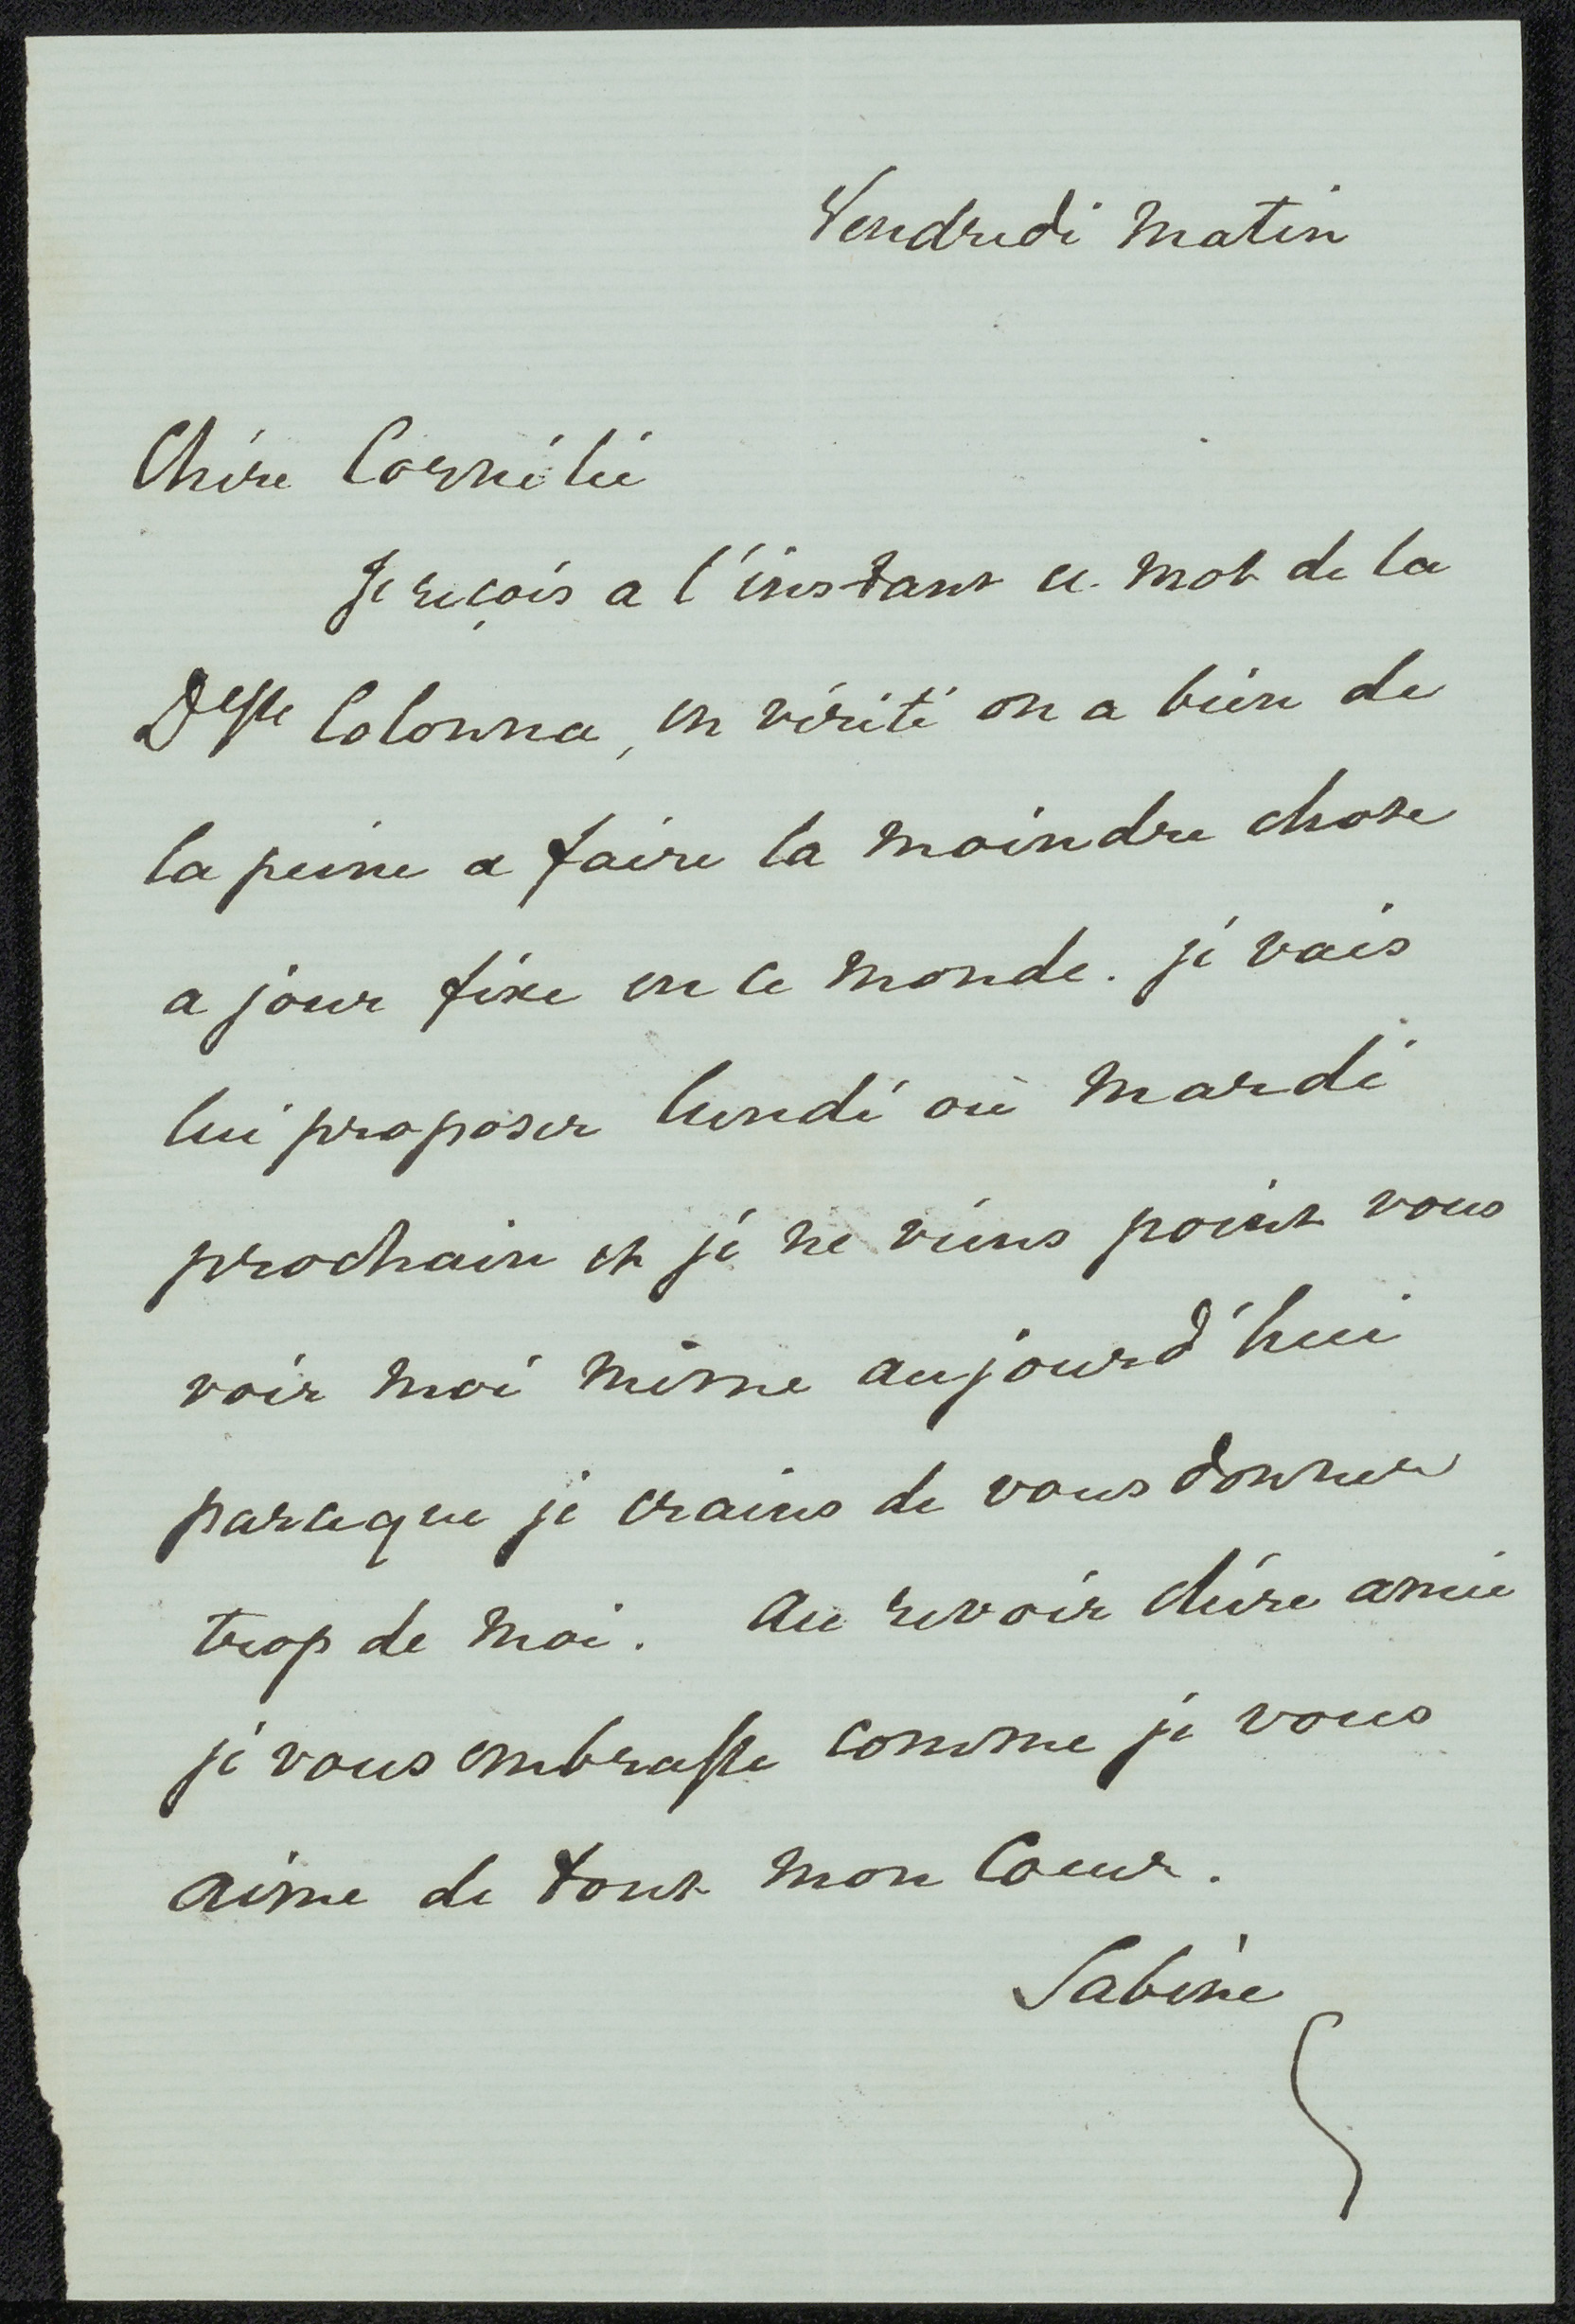 Vendredi Matin
Chère Cornélie
Je reçois a l'instant ce mot de la
Desse Colonna, en vérité on a bien de
la peine a faire la moindre chose
a jour fixe en ce monde. je vais
lui proposer lundi ou Mardi
prochain et je ne viens point vous
voir moi même aujourd'hui
parceque je crains de vous donner
trop de moi. Au revoir chère amie
je vous embrasse comme je vous
aime de tout mon Coeur.
Sabine